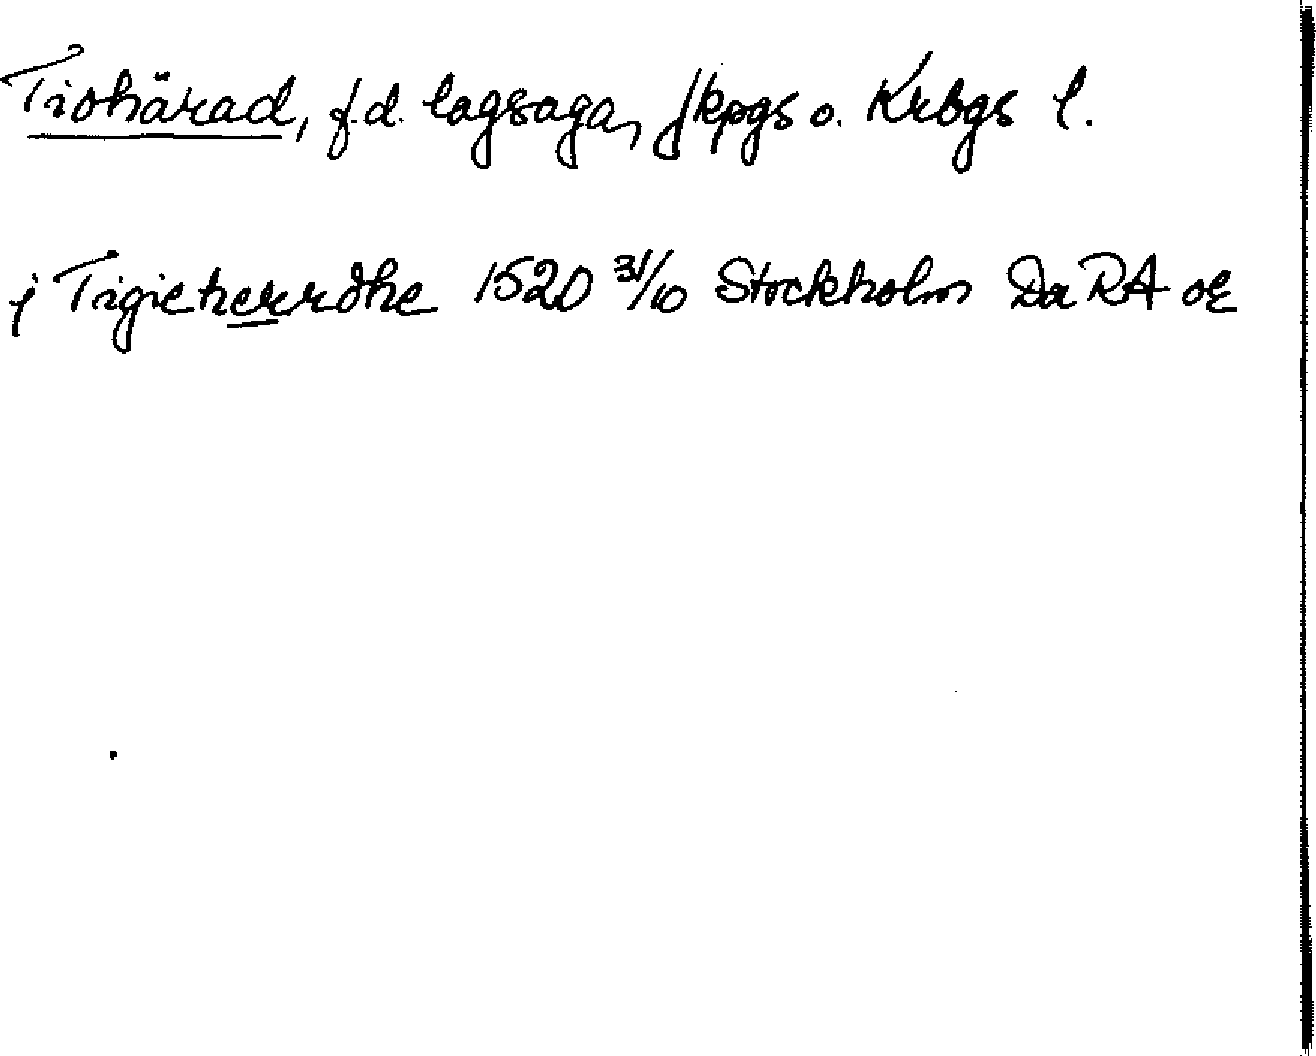 Tiohärad, f.d. lagsaga, Jkpgs o. Krbgs l.
j Tigieherrdhe 1520 31/10 Stockholm Da RA oε